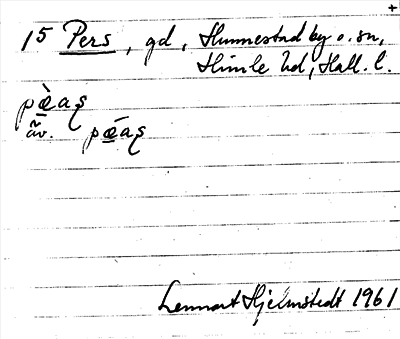 15 Pers, gd, Hunnestad by o. sn,
Himle hd, Hall. l.
pœ̀aş
äv. pœ́aş
Lennart Hjelmstedt 1961